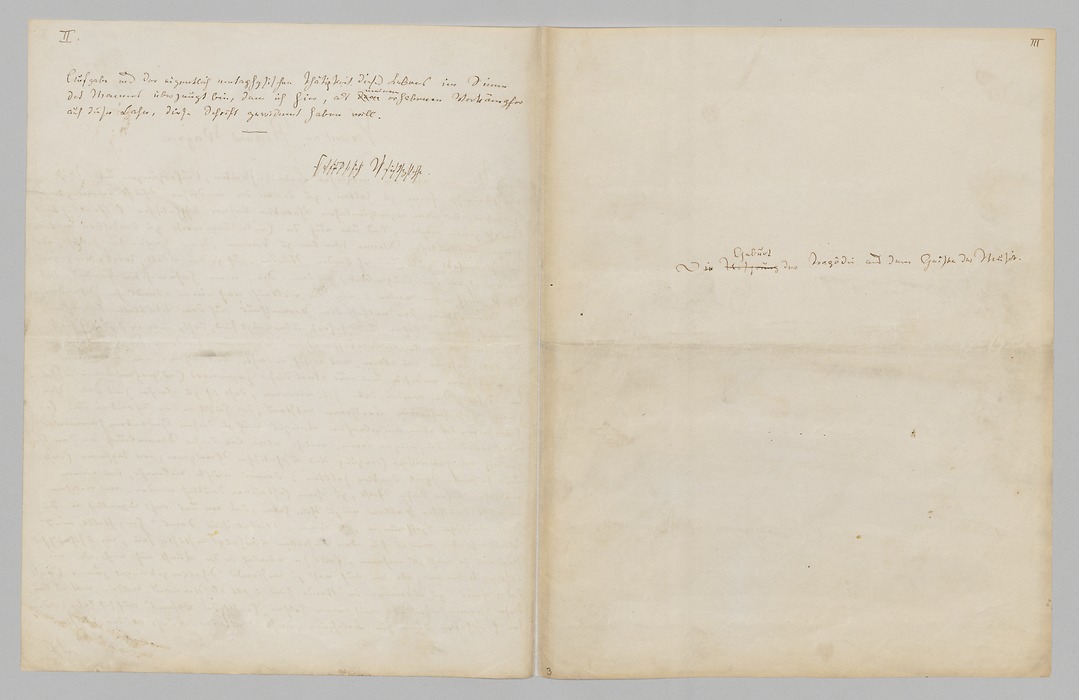 II.
Aufgabe und der eigentlich metaphysischen Thätigkeit dieses Lebens im Sinne
des Mannes überzeugt bin, dem ich hier, als
meinem
erhabenen Vorkämpfer
auf dieser Bahn, diese Schrift gewidmet haben will.
Friedrich Nietzsche.
III
Geburt
Die Ursprung der Tragödie aus dem Geiste der Musik.
3